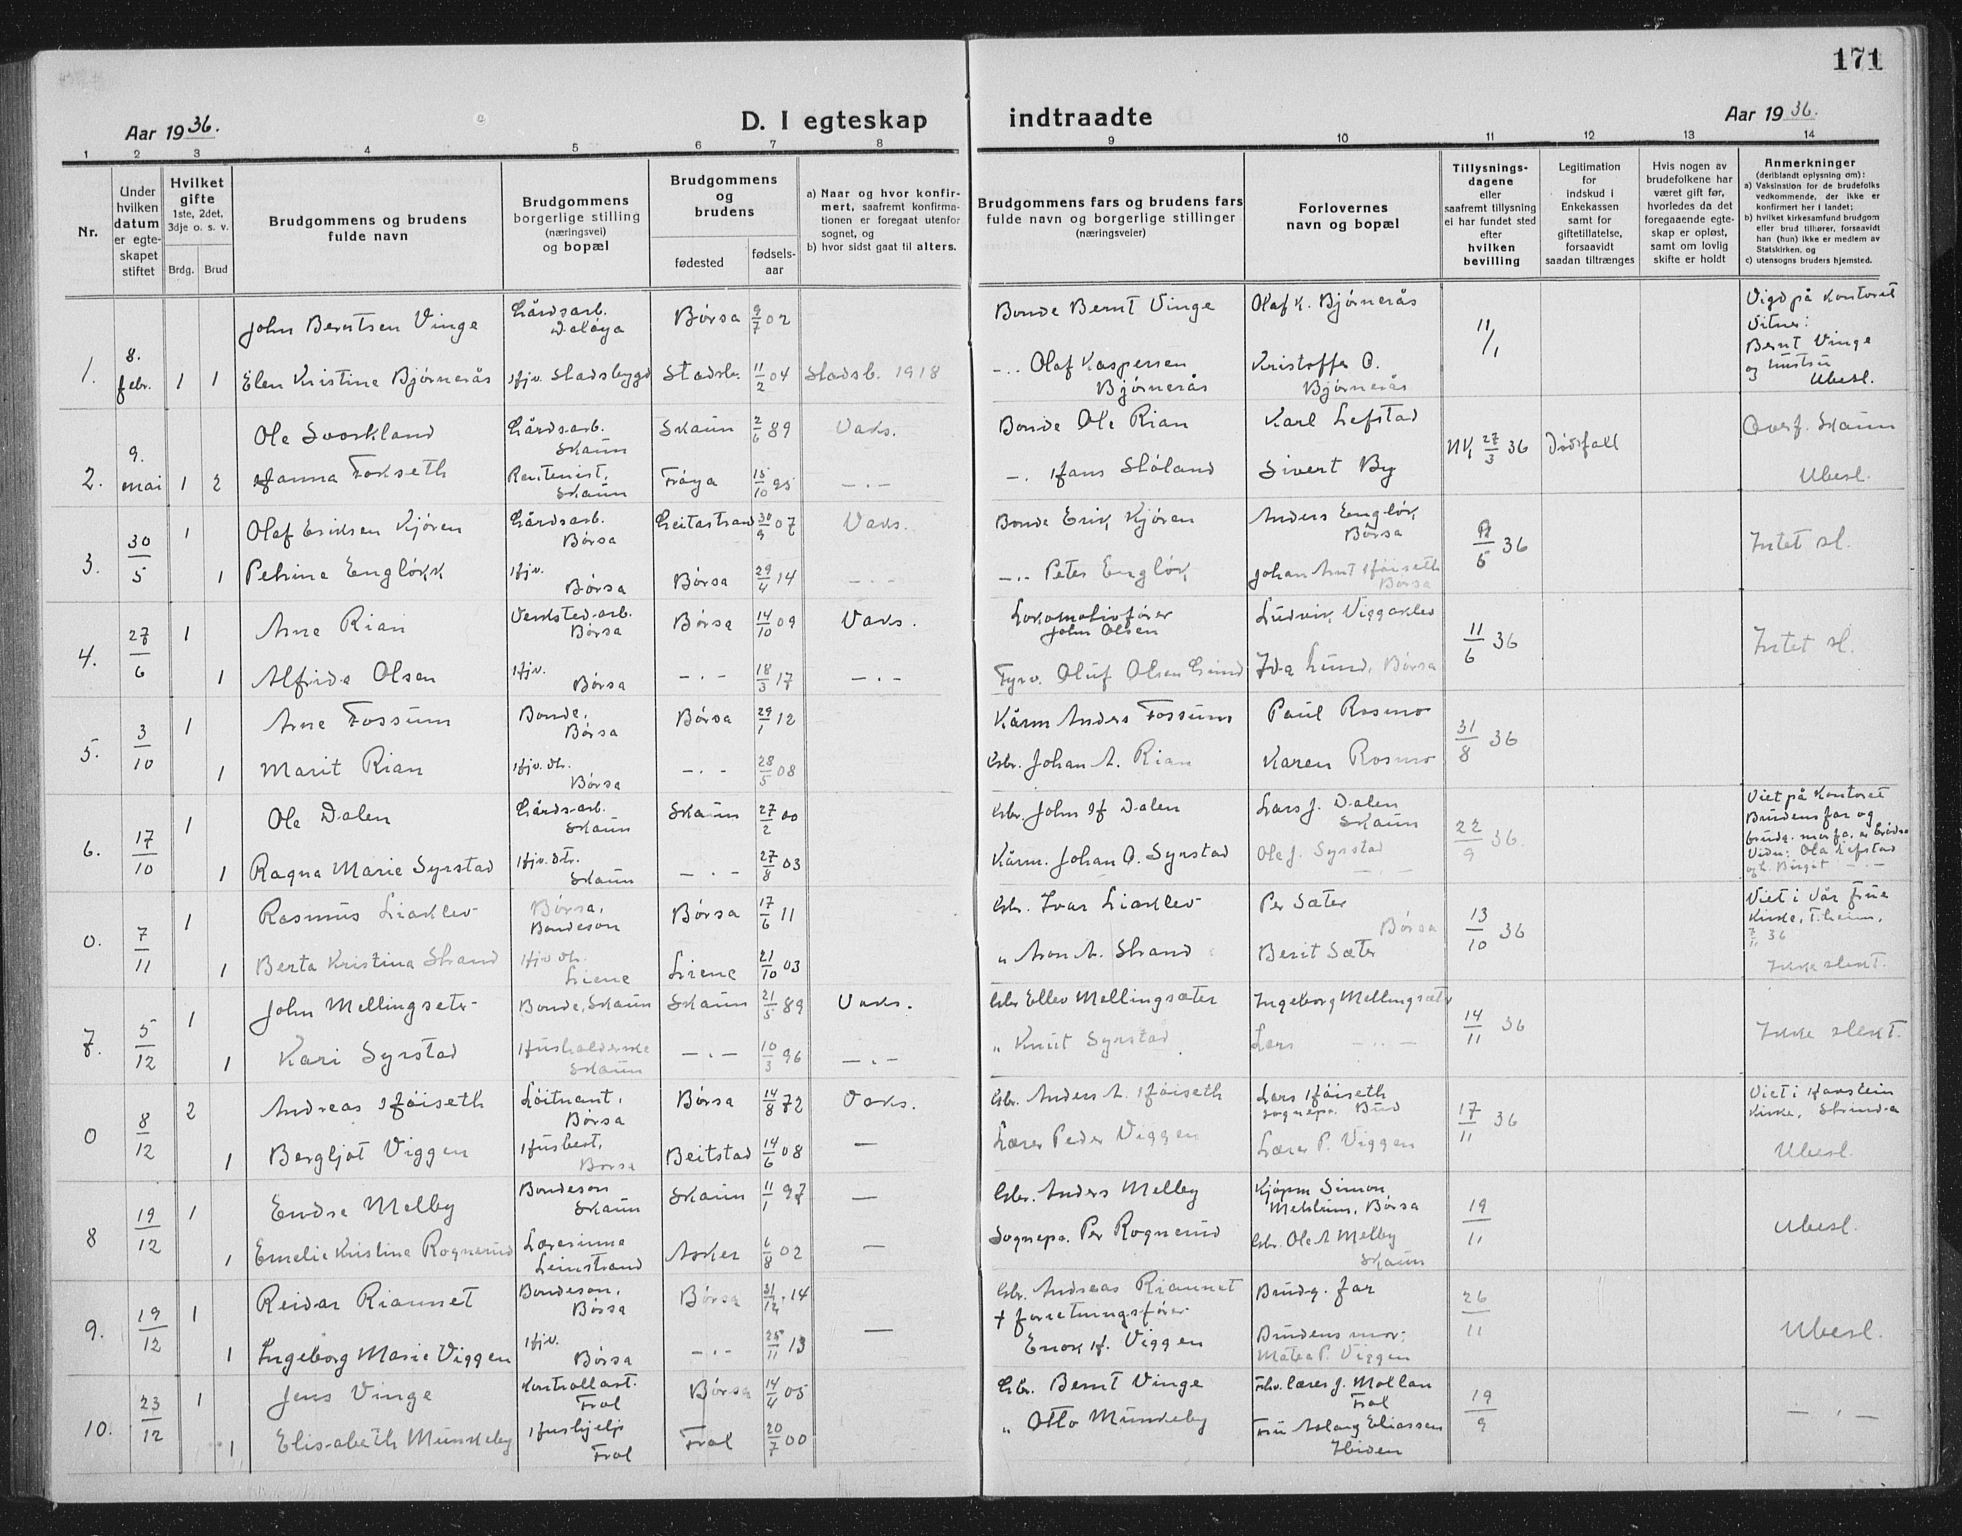 171
Aar 1936.
D. I egteskap
indtraadte
Aar 1936.
1 2 3 4 5 6 7 8 9 10 11 12 13 14
Nr.
Under hvilken datum er egteskapet stiftet
Hvilket gifte
1ste, 2det, 3dje o. s. v.
Brdg. Brud
Brudgommens og brudens
fulde navn
Brudgommens
borgerlige stilling
(næringsvei)
og bopæl
Brudgommens
og
brudens
fødested
fødsels-
aar
a) Naar og hvor konfir-
mert, saafremt konfirma-
tionen er foregaat utenfor
sognet, og
b) hvor sidst gaat til alters.
Brudgommens fars og brudens fars
fulde navn og borgerlige stillinger
(næringsveier)
Forlovernes
navn og bopæl
Tillysnings-
dagene
eller
saafremt tillysning
ei har fundet sted
efter
hvilken
bevilling
Legitimation
for
indskud i
Enkekassen
samt for
giftetillatelse,
forsaavidt
saadan tiltrænges
Hvis nogen av
brudefolkene har
været gift før,
hvorledes da det
foregaaende egte-
skap er opløst,
samt om lovlig
skifte er holdt
Anmerkninger
(deriblandt oplysning om):
a) Vaksination for de brudefolks
vedkommende, der ikke er
konfirmert her i landet;
b) hvilket kirkesamfund brudgom
eller brud tilhører, forsaavidt
han (hun) ikke er medlem av
Statskirken, og
c) utensogns bruders hjemsted.
1. 8. febr. 1 1
John Berntsen Vinge Gårdsarb. Børsa 9/7 02 Bonde Bernt Vinge Olaf K. Bjørnerås 11/1 Vigd på kontoret
Vitner:
Bernt Vinge
og hustru
Ubesl.
Elen Kristine Bjørnerås Hjv. Stadsbygd Stadsb. 11/2 04 Stadsb. 1918 -.. Olaf Kaspersen Bjørnerås Kristoffer O. Bjørnerås
2. 9. mai 1 2
Ole Svorkland Gårdsarb. Skaun Skaun 2/6 89 Vaks. Bonde Ole Rian Karl Lefstad 27/3 36 Dødsfall Overf. Skaun
Hanna Fokseth Rentenist, Skaun Frøya 15/10 95 -.- -. Hans Sløland Sivert By Ubesl.
3. 30/5 1
Olaf Eriksen Kjøren Gårdsarb. Børsa Geitastrand 30/9 07 Vaks. Bonde Erik Kjøren Anders Engløk Børsa /5 36 Intet sl.
1 Petrine Engløkk Hjv. Børsa Børsa 29/4 14 -.- -.. Peter Engløk Johan Arnt Høiseth Børsa
4. 27/6 1
Arne Rian Verksted.arb. Børsa Børsa 14/10 09 Vaks. Lokomotivfører John Olsen Ludvik Viggaklev 11/6 36 Intet sl.
1 Alfride Olsen Hjv. Børsa -.- 18/3 17 -.- Fyrv. Oluf Olsen Lund Ida Lund, Børsa
5. 3/10 1
Arne Fossum Bonde, Børsa Børsa 29/1 12 Kårm Anders Fossum Paul Rosmo 31/8 36
1 Marit Rian Hjv. dtr. Børsa -.- 28/5 08 Gbr. Johan A. Rian Karen Rosmo
6. 17/10 1
Ole Dalen Gårdsarb. Skaun Skaun 27/2 00 Gbr. John H Dalen Lars J. Dalen Skaun 22/9 36. Viet på kontoret
Brudens far og
brudg. morfa. er brødre
Vidn: Ola Lefstad
og L. Birgit -.-
1 Ragna Marie Syrstad Hjv. dtr. Skaun -.- 27/8 03 Kårm. Johan O. Syrstad Ole J. Syrstad -.-
0. 7/11 1
Rasmus Liaklev Børsa, Bondesøn Børsa 17/6 11 Gbr. Ivar Liaklev Per Sæter Børsa 13/10 36 Viet i Vår Frue
Kirke, T.heim,
7/11 36
Ikke slekt.
1 Berta Kristina Strand Hjv dtr. Liene Liene 21/10 03 " Aron A. Strand Berit Sæter
7. 5/12 1
John Mellingsetr Bonde, Skaun Skaun 21/5 89 Vaks. Gbr Ellev Mellingsæter Ingeborg Mellingsæter 14/11 36 Ikke slekt.
1 Kari Syrstad Husholderske Skaun -.- 10/3 96 -.- " Knut Syrstad Lars -..-
0 8/12 2
Andreas Høiseth Løitnant, Børsa Børsa 14/8 72 Vaks. Gbr. Anders A. Høiseth Lars Høiseth sognepr. Bud 17/11 36 Viet i Havstein
Kirke, Strinda
Ubesl.
1 Bergljot Viggen Husbest, Børsa Beitstad 14/6 08 — Lærer Peder Viggen Lærer P. Viggen
8 19/12 1
Endre Melby Bondeson Skaun Skaun 11/1 97 — Gbr. Anders Melby Kjøpm Simon Mehlum, Børsa 19/11 Ubesl.
1 Emelie Kristine Rognerud Lærerinne Leinstrand Asker 6/8 02 — Sognepr. Per Rognerud Gbr. Ole A Melby Skaun
9. 19/12 1
Reidar Riaunet Bondeson, Børsa Børsa 31/12 14 Gbr. Andreas Riaunet Brudg. far 26/11 Ubesl.
1 Ingeborg Marie Viggen Hjv. Børsa -.- 25/11 13 — + forretningsfører Enok H. Viggen Brudens mor: Matea P. Viggen
10. 23/12 1
Jens Vinge Kontrollast. Frol Børsa 14/4 05 Gbr. Bernt Vinge Fhv. lærer J. Mollan Frol 19/9 -.-
1 Elisabeth Munkeby Hushjelp Frol Frol 20/7 00 " Otto Munkeby Fru Aslaug Eliassen Heiden